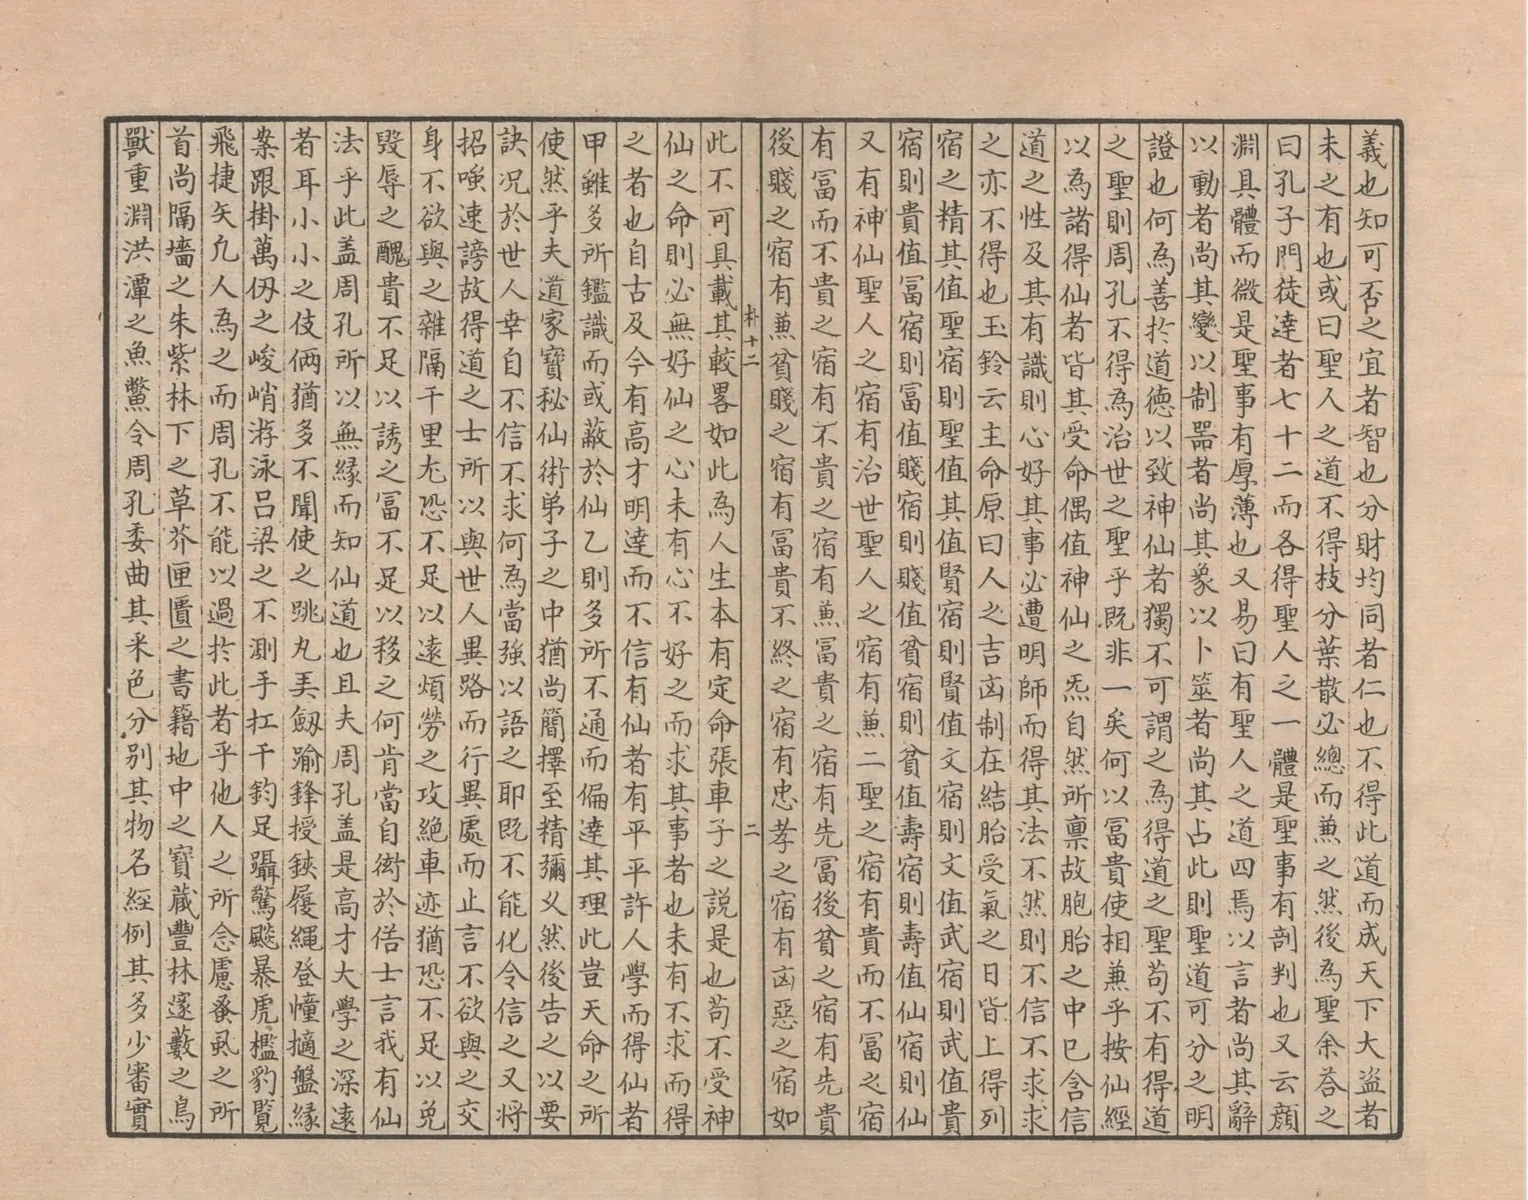 義也知可否之宜者智也分財均同者仁也不得此道而成天下大盜者
未之有也或曰聖人之道不得枝分葉散必總而兼之然後為聖余荅之
曰孔子門徒達者七十二而各得聖人之一體是聖事有剖判也又云顔
淵具體而微是聖事有厚薄也又易曰有聖人之道四焉以言者尚其辭
以動者尚其變以制噐者尚其象以卜筮者尚其占此則聖道可分之明
證也何為善於道德以致神仙者獨不可謂之為得道之聖苟不有得道
之聖則周孔不得為治世之聖乎既非一矣何以冨貴使相兼乎按仙經
以為諸得仙者皆其受命偶值神仙之炁自然所禀故胞胎之中已含信
道之性及其有識則心好其事必遭明師而得其法不然則不信不求求
之亦不得也玉鈴云主命原曰人之吉凶制在結胎受氣之日皆上得列
宿之精其值聖宿則聖值其值賢宿則賢值文宿則文值武宿則武值貴
宿則貴值冨宿則冨值賤宿則賤值貧宿則貧值壽宿則壽值仙宿則仙
又有神仙聖人之宿有治世聖人之宿有兼二聖之宿有貴而不冨之宿
有冨而不貴之宿有不貴之宿有兼冨貴之宿有先冨後貧之宿有先貴
後賤之宿有兼貧賤之宿有冨貴不終之宿有忠孝之宿有凶惡之宿如
朴十二 二
此不可具載其較畧如此為人生本有定命張車子之説是也苟不受神
仙之命則必無好仙之心未有心不好之而求其事者也未有不求而得
之者也自古及今有高才明達而不信有仙者有平平許人學而得仙者
甲雖多所鑑識而或蔽於仙乙則多所不通而偏達其理此豈天命之所
使然乎夫道家寶秘仙術弟子之中猶尚簡擇至精彌乂然後告之以要
訣况於世人幸自不信不求何為當強以語之耶既不能化令信之又将
招嗤速謗故得道之士所以與世人異路而行異處而止言不欲與之交
身不欲與之雜隔千里尢恐不足以遠煩勞之攻絶車迹猶恐不足以免
毀辱之醜貴不足以誘之冨不足以移之何肯當自衒於俗士言我有仙
法乎此盖周孔所以無緣而知仙道也且夫周孔盖是高才大學之深遠
者耳小小之伎倆猶多不聞使之跳丸弄劔踰鋒授鋏履䋲登幢擿盤緣
案跟掛萬仭之峻峭游泳吕梁之不測手扛千鈞足躡驚飈暴虎檻豹覧
飛捷矢凢人為之而周孔不能以過扵此者乎他人之所念慮蚤虱之所
首尚隔墻之朱紫林下之草芥匣匱之書籍地中之寳蔵豐林邃藪之鳥
獸重淵洪潭之魚鱉令周孔委曲其采色分别其物名經例其多少審實